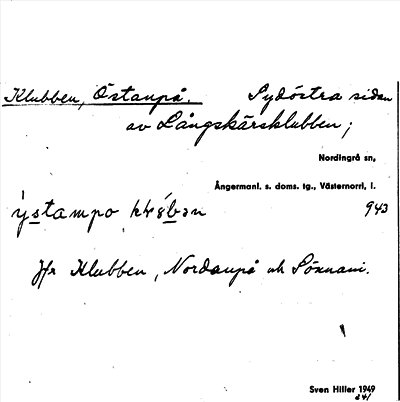 Klubben, Östanpå. Sydöstra sidan
av Långskärsklubben;
Nordingrå sn,
Ångermanl. s. doms. tg., Västernorrl. l.
ýstampo 943
Jfr Klubben, Nordanpå och Sönnani.
Sven Hiller 1949